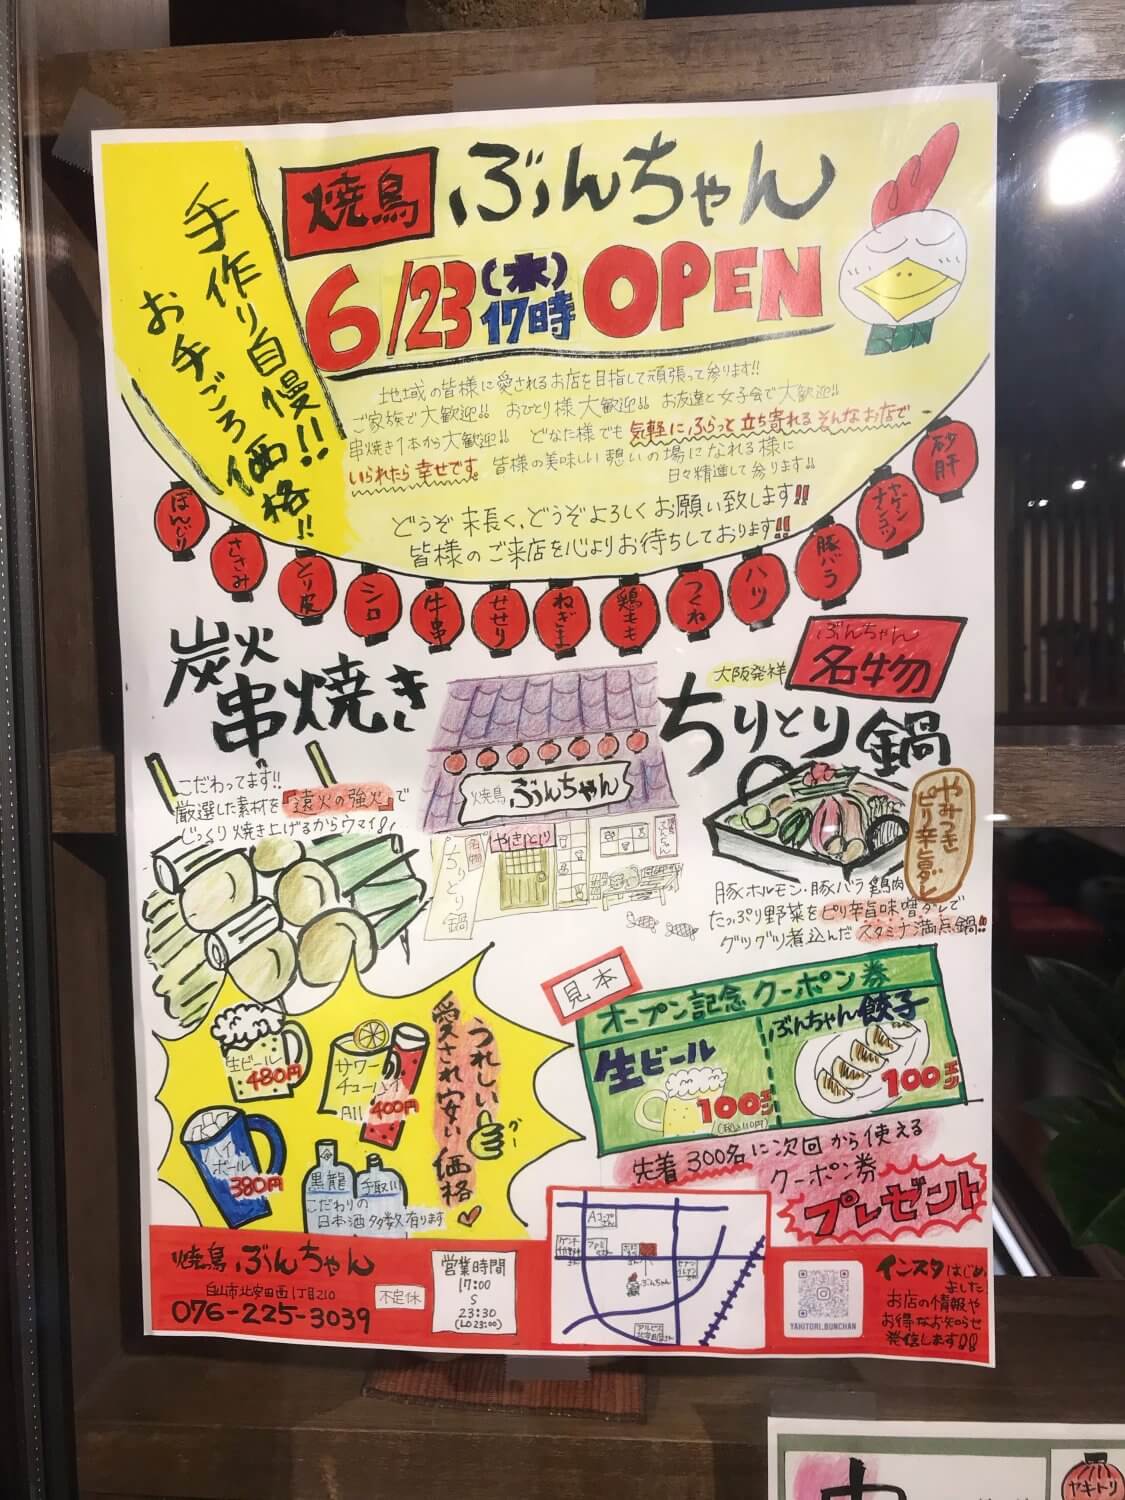 焼鳥 ぶんちゃん
6/23(木)17時 OPEN
BUN
手作り自慢!!
お手ごろ価格!!
地域の皆様に愛されるお店を目指して頑張って参ります!!
ご家族で大歓迎!! おひとり様大歓迎!! お友達と女子会で大歓迎!!
串焼き1本から大歓迎!! どなた様でも気軽にふらっと立ち寄れるそんなお店で
いられたら幸せです。皆様の美味しい憩いの場になれる様に
日々精進して参ります!!
どうぞ末長く、どうぞよろしくお願い致します!!
皆様のご来店を心よりお待ちしております!!
ぼんじり
ささみ
とり皮
シロ
牛串
せせり
ねぎま
鶏もも
つくね
ハツ
豚バラ
ヤゲンナンコツ
砂肝
炭火
串焼き
こだわってます!!
厳選した素材を『遠火の強火』で
じっくり焼き上げるからウマイ!
焼鳥 ぶんちゃん
やきとり
名物
ちりとり鍋
ぶんちゃん
名物
大阪発祥
ちりとり鍋
やみつき
ピリ辛旨ダレ
豚ホルモン・豚バラ 鶏肉
たっぷり野菜をピリ辛旨味噌ダレで
グツグツ煮込んだスタミナ満点鍋!!
生ビール
480円
サワー
チューハイ
All 400円
ハイ
ボール
380円
黒龍
手取川
こだわりの
日本酒多数有ります
うれしい
愛され安い価格
グー
見本
オープン記念クーポン券
生ビール
100エン
(税込110円)
ぶんちゃん餃子
100エン
先着300名に次回から使える
クーポン券
プレゼント
焼鳥 ぶんちゃん
白山市北安田西1丁目210
076-225-3039
不定休
営業時間
17:00
S
23:30
(LO 23:00)
Aコープさん
ぶんちゃん
YAKITORI_BUNCHAN
インスタはじめ
ました
お店の情報や
お得なお知らせ
発信します!!
ヤキトリ